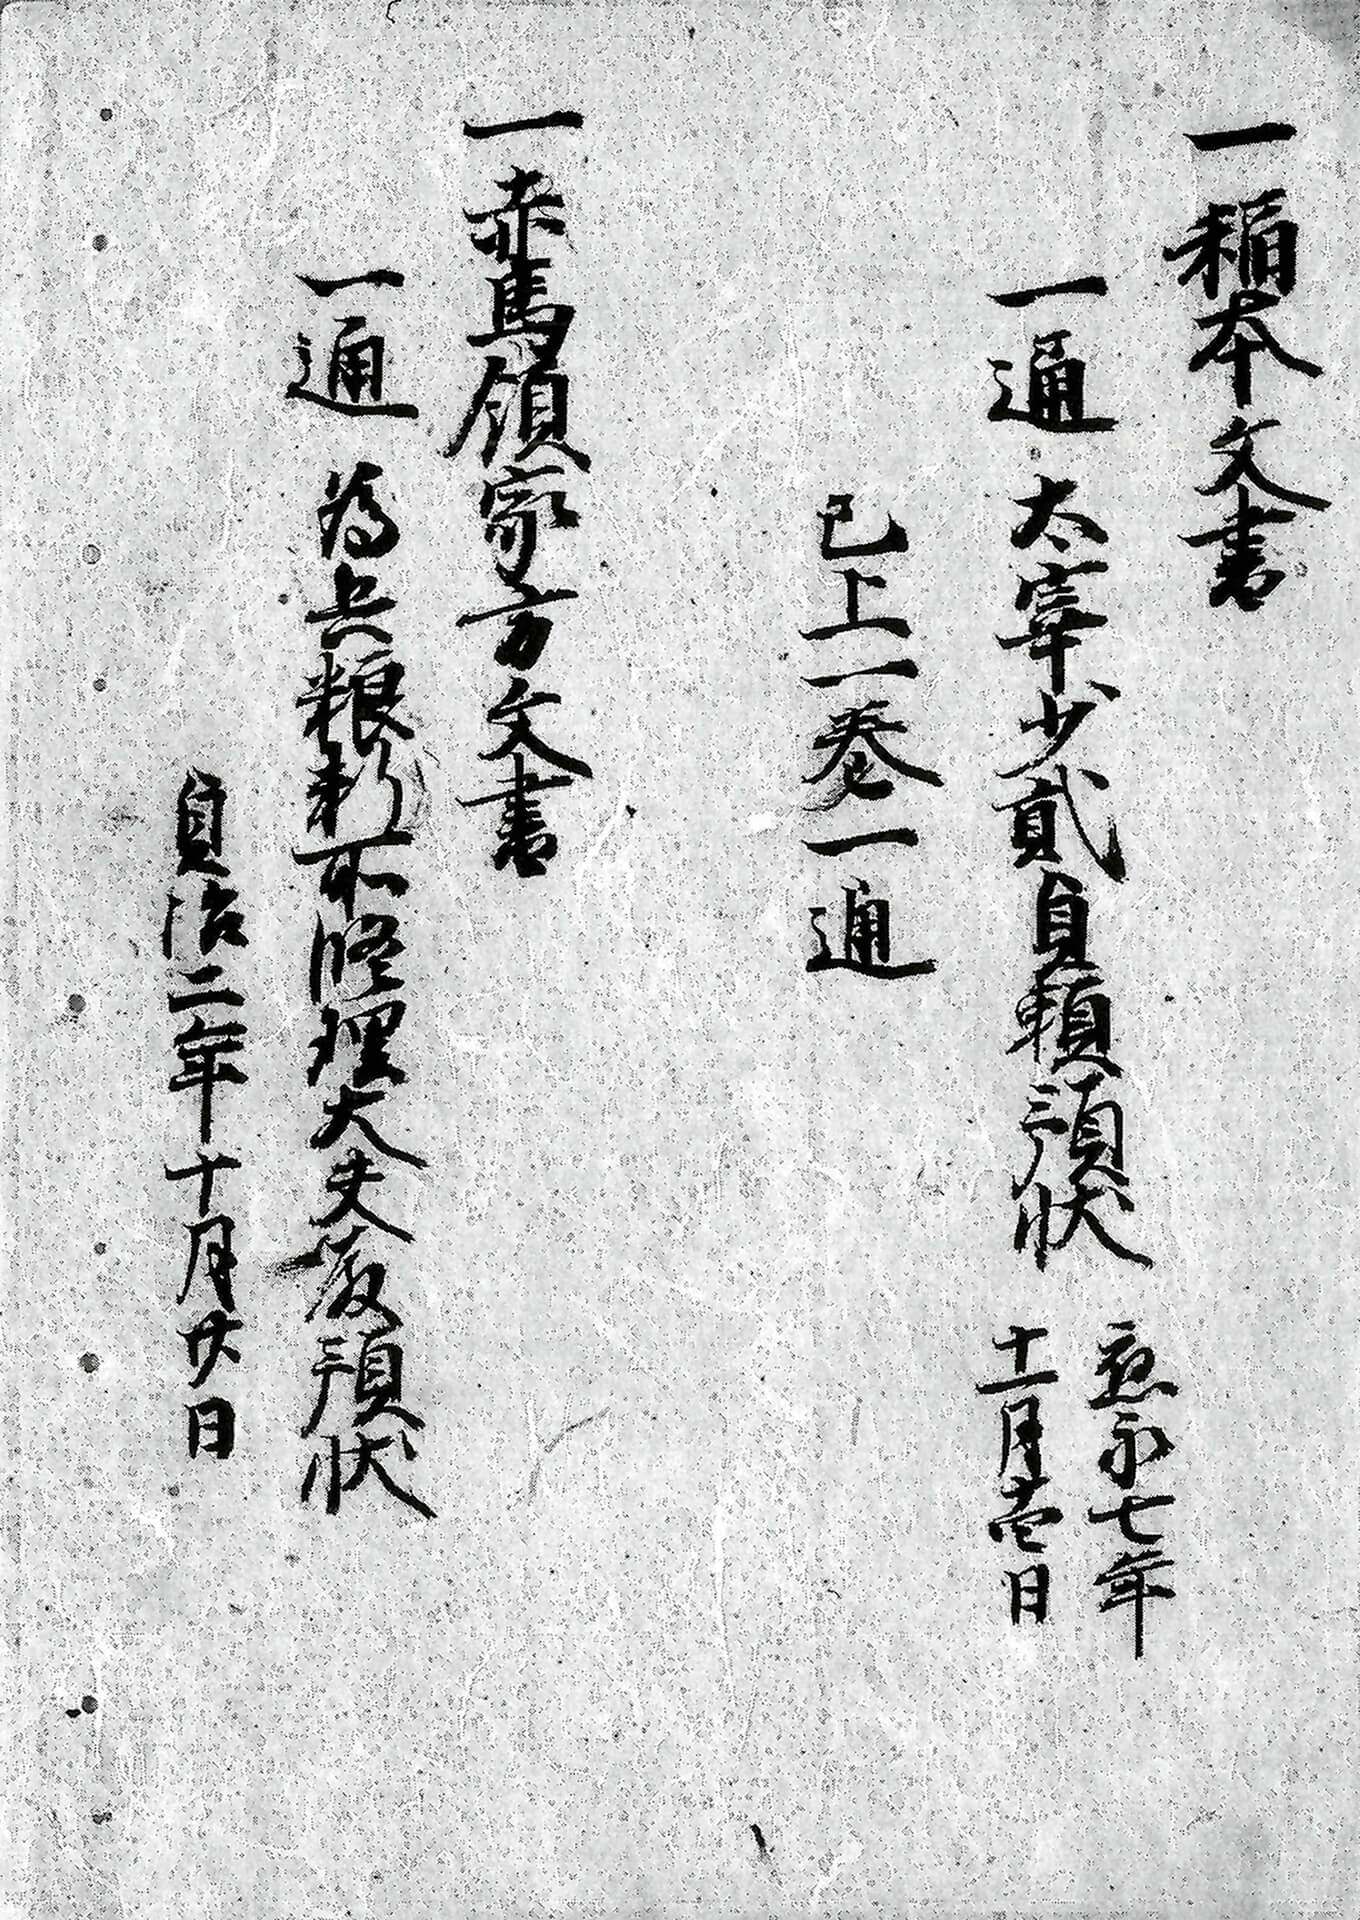 一稲本文書
一通 太宰少貳貞頼預状 應永七年
十一月壱日
已上一巻一通
一赤馬領家方文書
一通 為兵粮料所修理大夫殿預状
貞治二年十月廿日